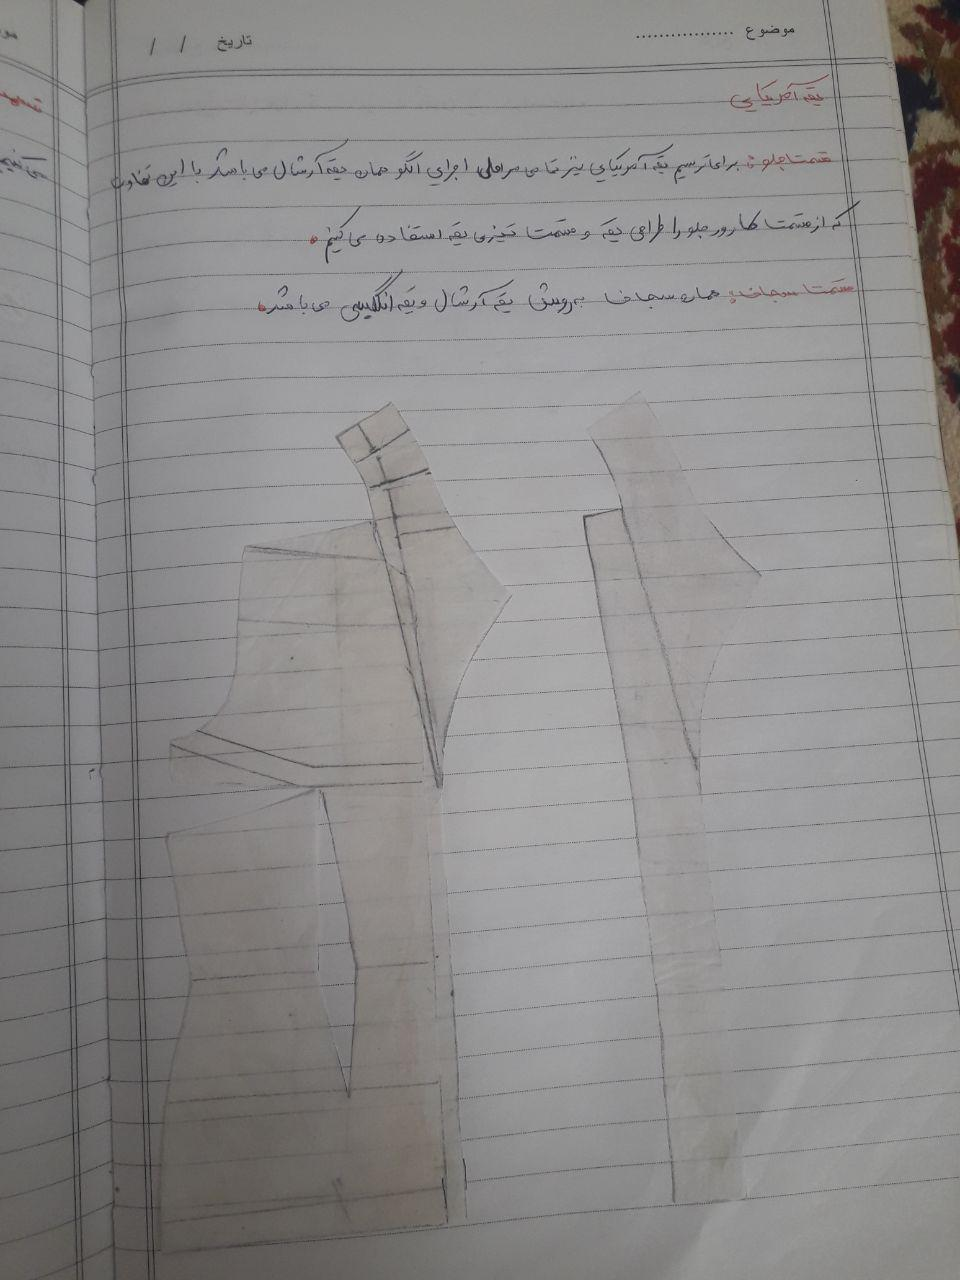 موضوع .................
تاریخ / /
یقه آمریکایی
قسمت جلو: برای ترسیم یقه آمریکایی نیز تمامی مراحل اجرایی الگو همان یقه آرشال می باشد با این تفاوت
که از قسمت کارور جلو را طراحی یقه و قسمت تیزی یقه استفاده می کنیم.
قسمت سجاف: همان سجاف به روش یقه آرشال و یقه انگلیسی می باشد.